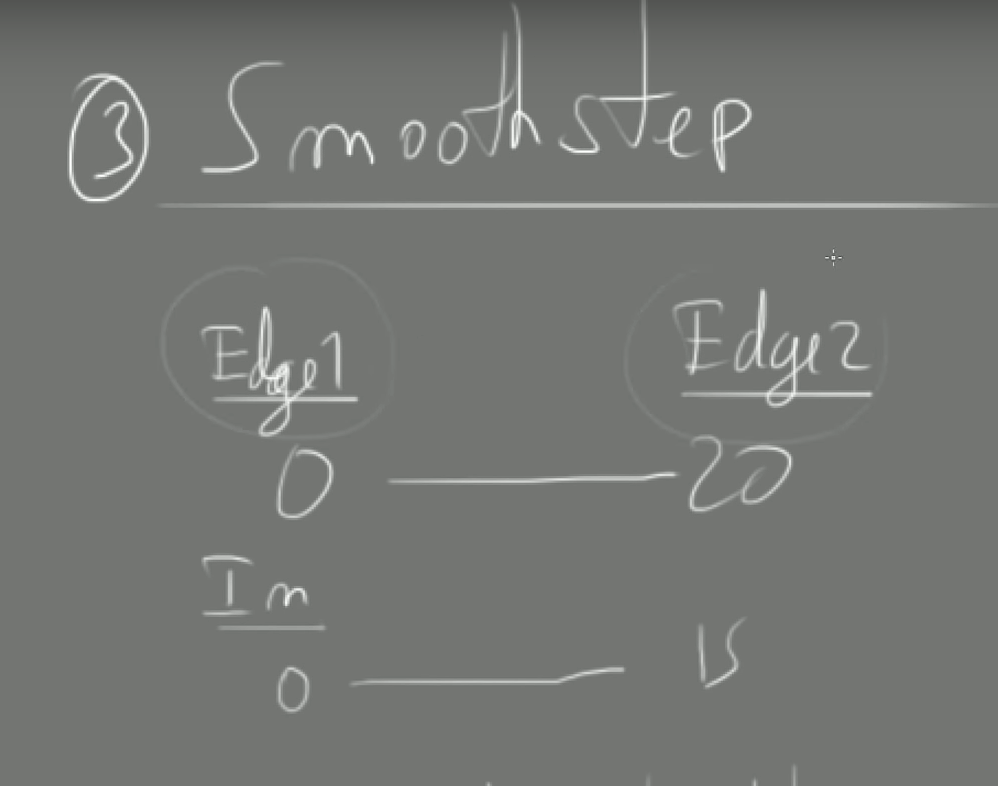 3 Smoothstep
Edge1 Edge2
0 20
In
0 15